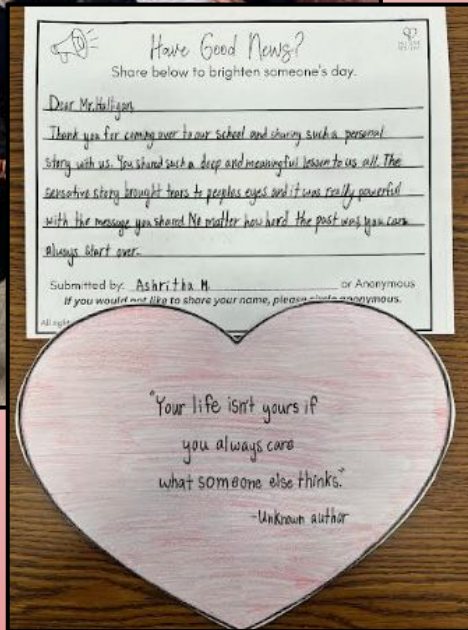 Have Good News?
Share below to brighten someone's day.
Dear Mr. Halligan
Thank you for coming over to our school and sharing such a personal
story with us. You shared such a deep and meaningful lesson to us all. The
sensative story brought tears to peoples eyes and it was really powerful
with the message you shared. No matter how hard the past was you can
always start over.
Submitted by: Ashritha M. or Anonymous
If you would not like to share your name, please circle anonymous.
All right
"Your life isn't yours if
you always care
what someone else thinks."
-Unknown author